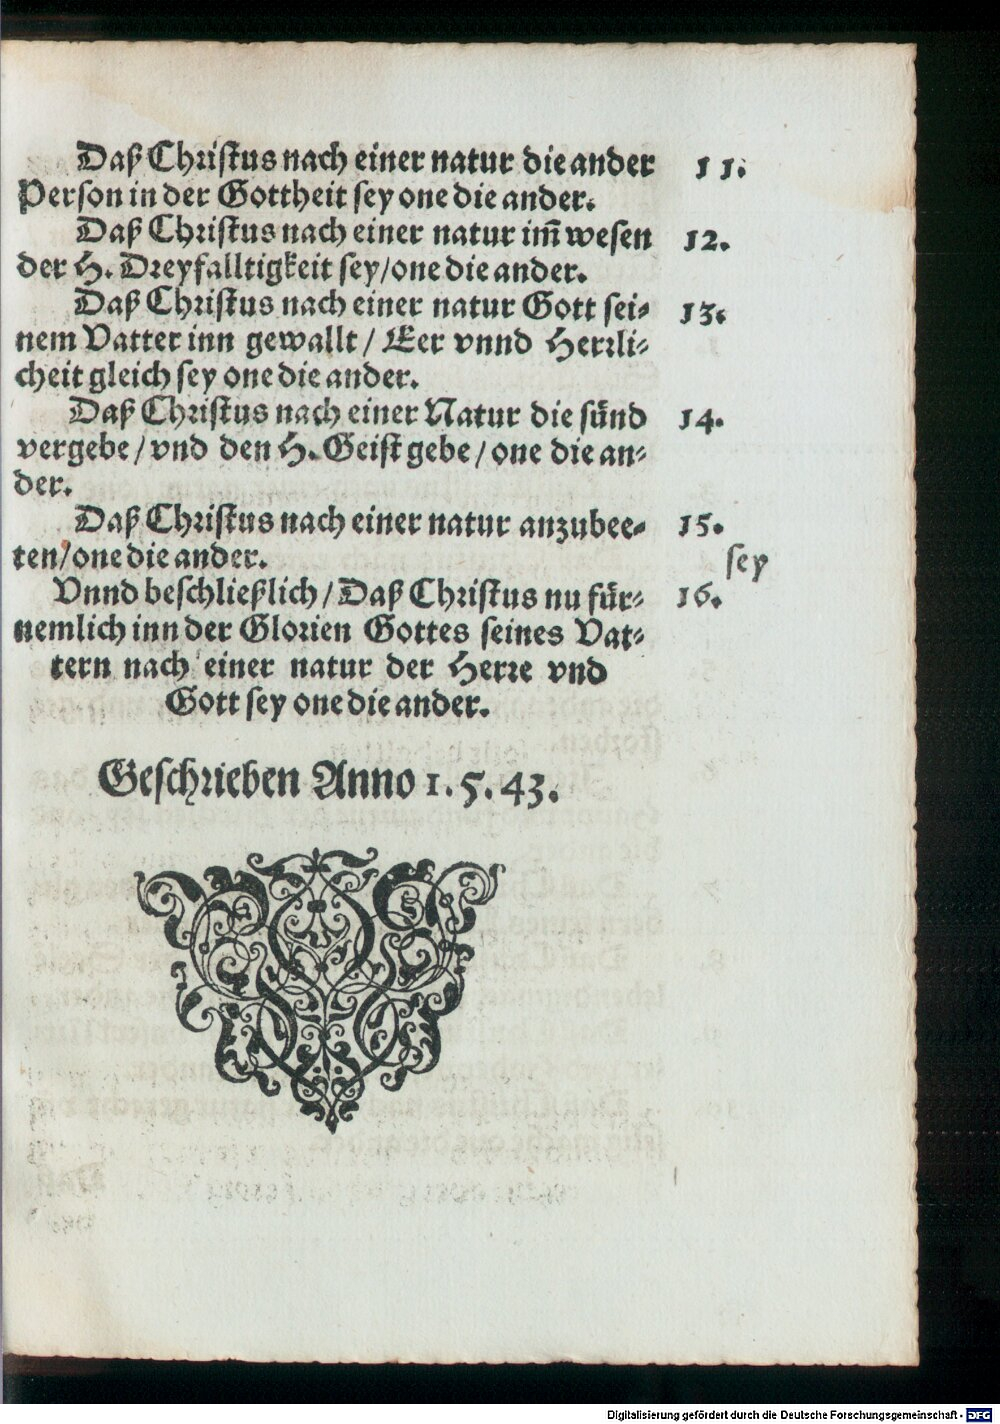 Daß Christus nach einer natur die ander 11.
Person in der Gottheit sey one die ander.
Daß Christus nach einer natur im̃ wesen 12.
der H. Dreyfalltigkeit sey/one die ander.
Daß Christus nach einer natur Gott sei⸗ 13.
nem Vatter inn gewallt / Eer vnnd Herrli⸗
cheit gleich sey one die ander.
Daß Christus nach einer Natur die sünd 14.
vergebe / vnd den H. Geist gebe / one die an⸗
der.
Daß Christus nach einer natur anzubee⸗ 15.
ten/one die ander. sey
Vnnd beschließlich / Daß Christus nu für⸗ 16.
nemlich inn der Glorien Gottes seines Vat⸗
tern nach einer natur der Herre vnd
Gott sey one die ander.
Geschrieben Anno 1. 5. 43.
Digitalisierung gefördert durch die Deutsche Forschungsgemeinschaft - DFG